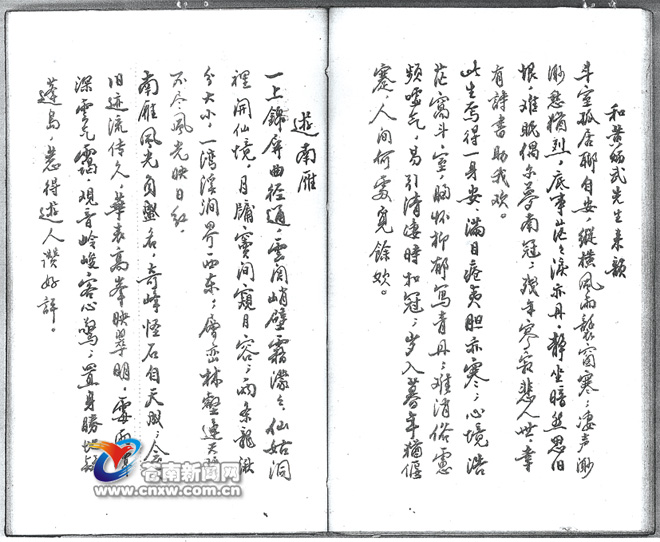 和黄炳武先生来韵
斗室孤居聊自安，纵横风雨袭窗寒；凄声渺
渺愁犹烈，底事茫茫泪亦丹，静坐暗然思旧
恨，难眠偶尔梦南冠；残年寥寂悲人世，幸
有诗书助我欢。
此生焉得一身安，满目疮夷胆亦寒；心境浩
茫窝斗室，胸怀抑郁写青丹；难消俗虑
频嘘气，易引清凄时和冠；岁入暮年犹偃
蹇，人间何处觅馀欢。
游南雁
一上锦屏曲径通，云间峭壁霜濛濛，仙姑洞
裡开仙境，月牖窦间窥月容；两条龙湫
分大小，一湾溪涧界西东，层峦林壑连天
不尽风光映日红。
南雁风光负盛名，奇峰怪石自天成；会
旧迹流传人，华表高峯映翠明，
深云气霭，观音岭峻客心惊；置身胜地
蓬岛，惹得游人赞好评。
苍南新闻网
www.cnxw.com.cn